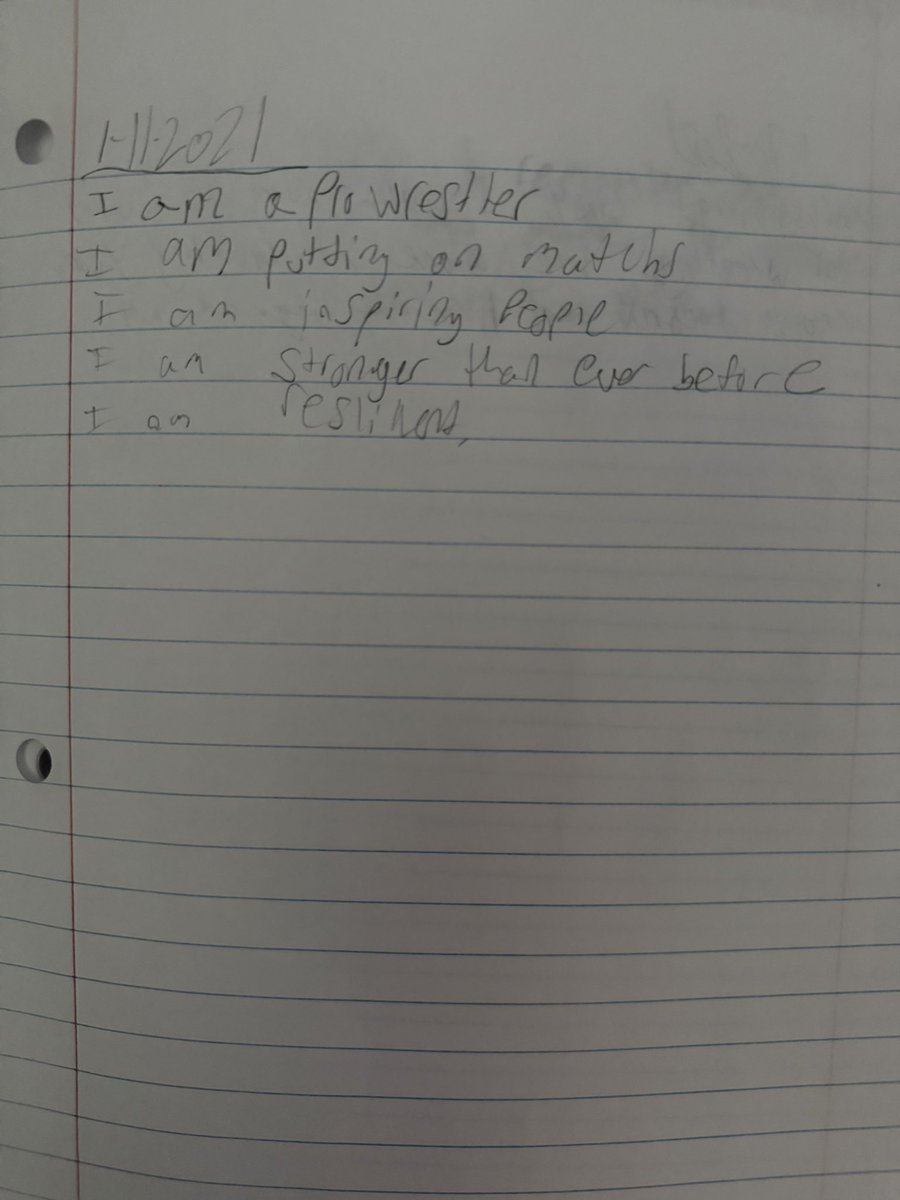 1-11-2021
I am a Pro Wrestler
I am putting on matchs
I am inspiring People
I am stronger than ever before
I am